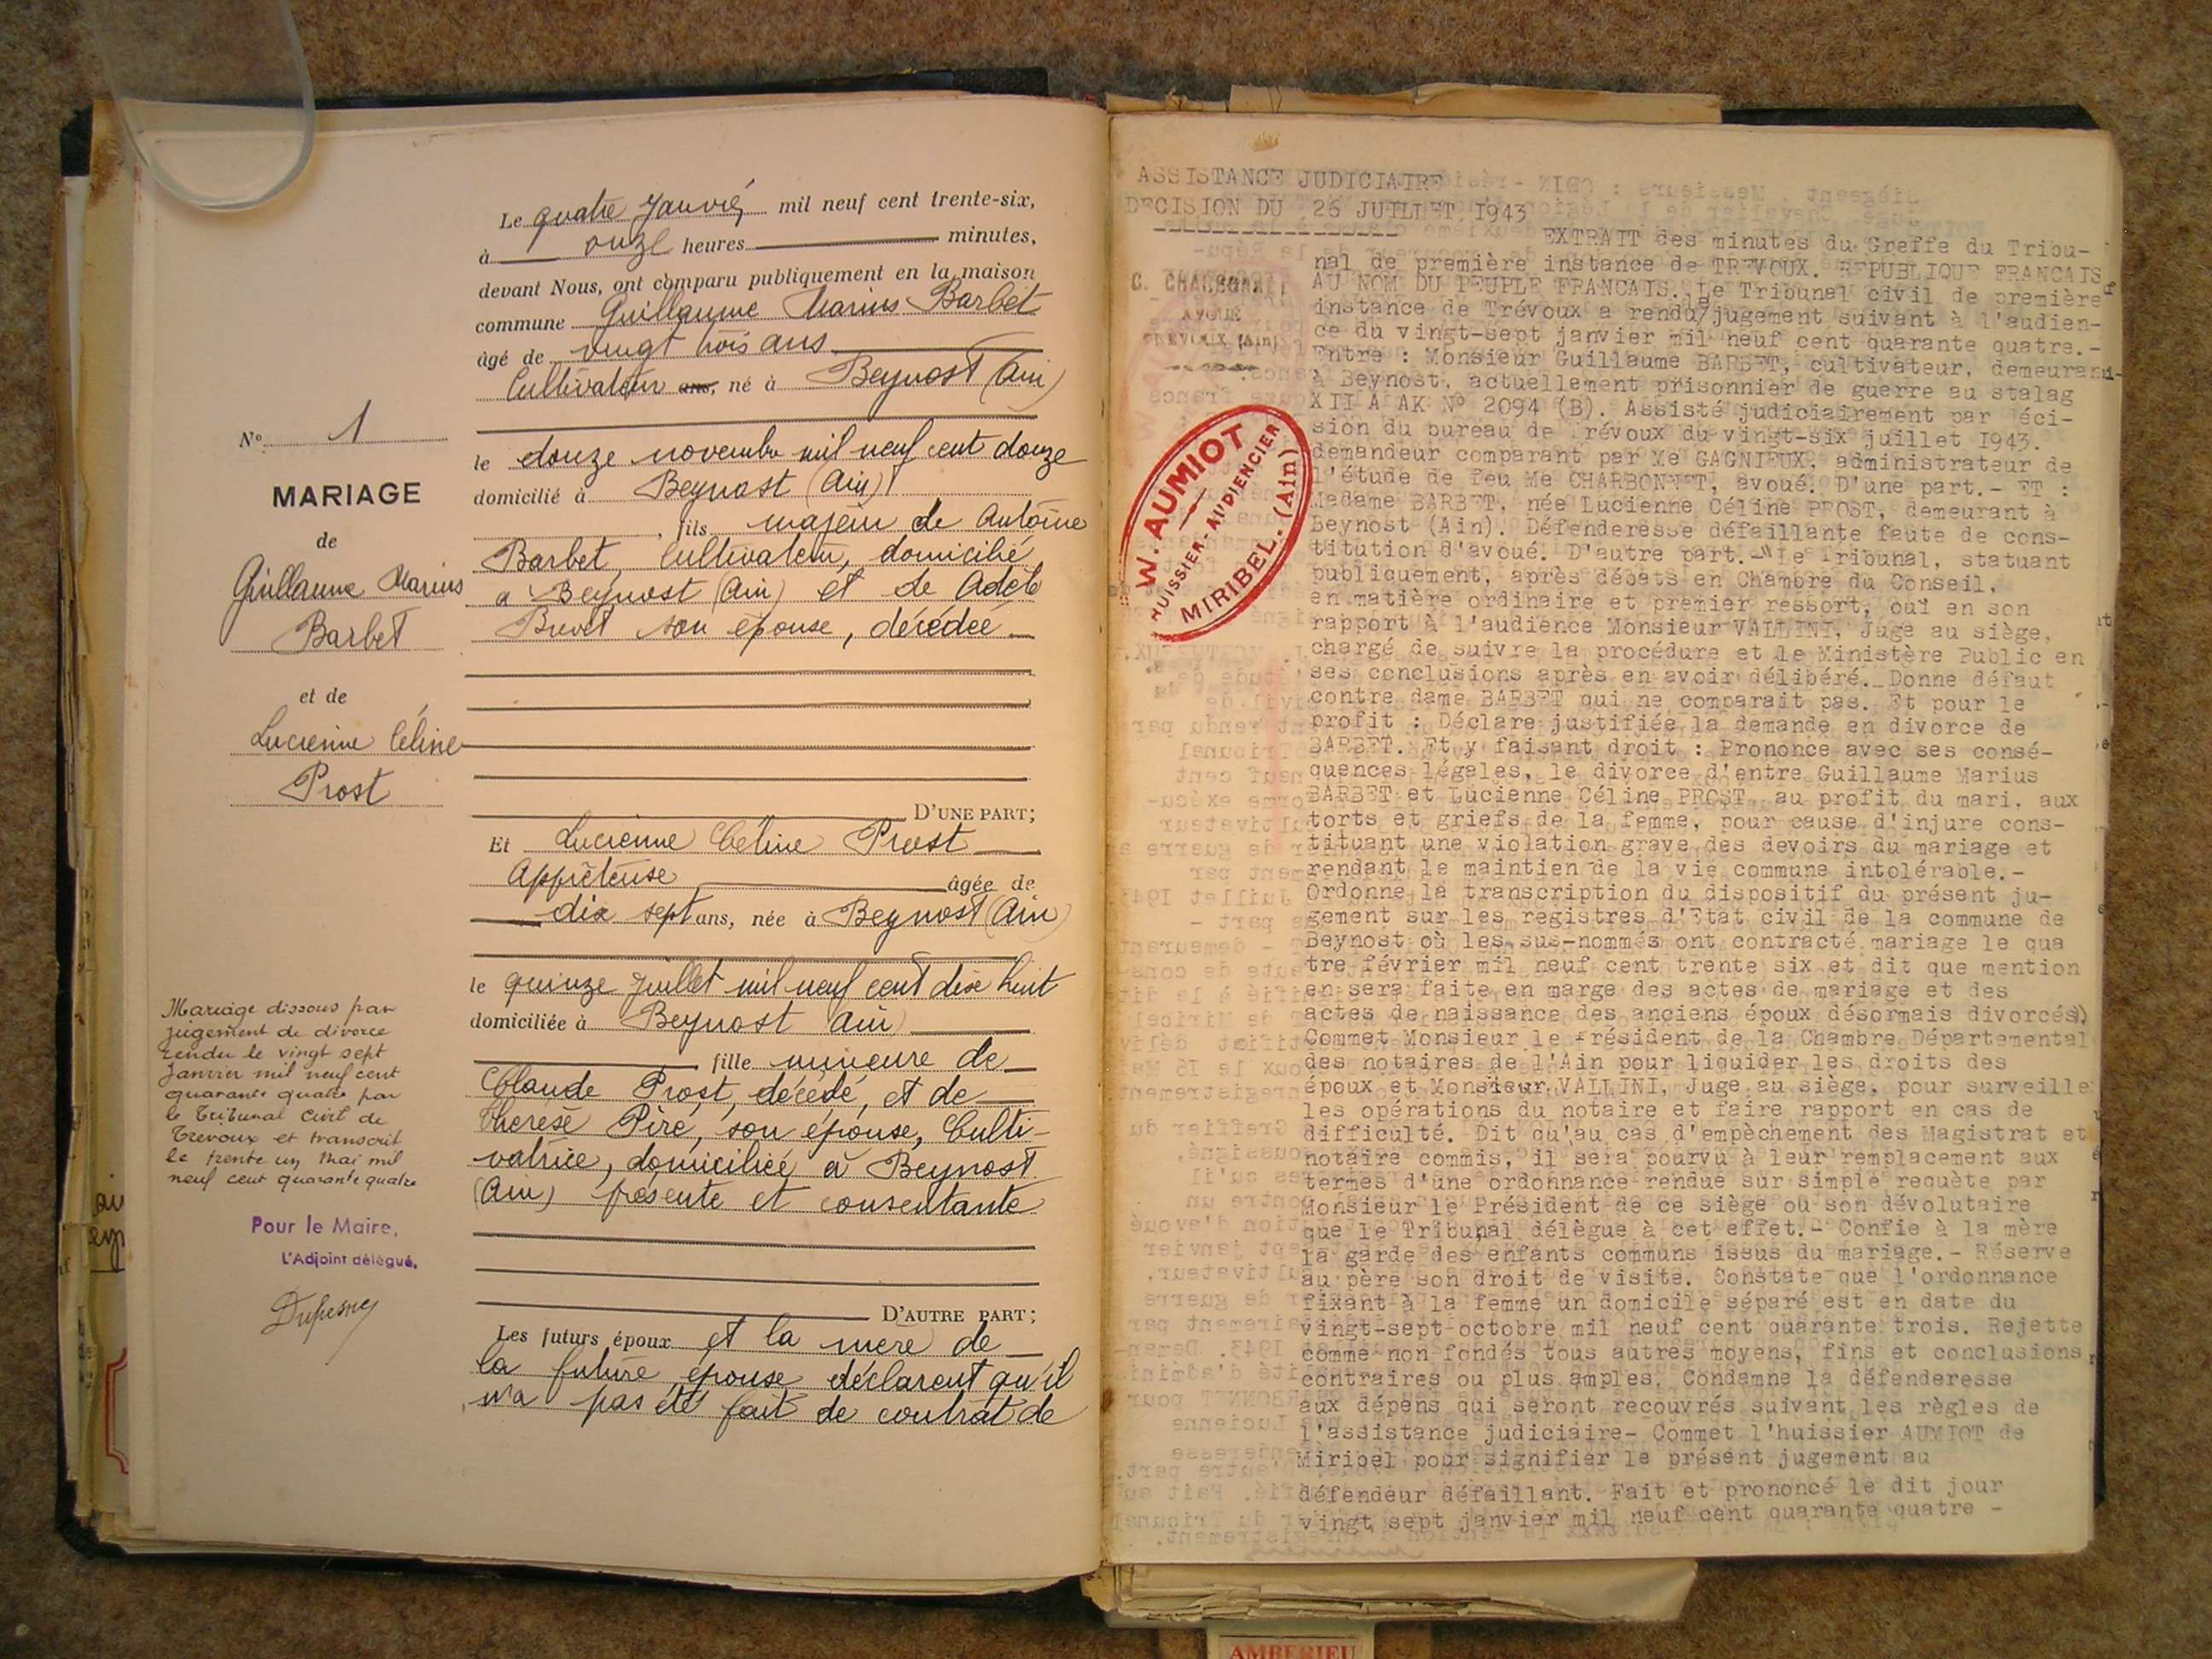 Le quatre Janvier mil neuf cent trente-six,
à onze heures minutes,
devant Nous, ont comparu publiquement en la maison
commune Guillaume Marius Barbet
âgé de vingt trois ans
Cultivateur ans, né à Beynost (Ain)
le douze novembre mil neuf cent douze
domicilié à Beynost (Ain)
, fils majeur de Antoine
Barbet, Cultivateur, domicilié
à Beynost (Ain) et de Adèle
Brevet son épouse, décédée
D'UNE PART;
Et Lucienne Céline Prost
Apprêteuse âgée de
dix sept ans, née à Beynost (Ain)
le quinze Juillet mil neuf cent dix huit
domiciliée à Beynost Ain)
fille mineure de
Claude Prost, décédé, et de
Therèse Piré, son épouse, Culti-
vatrice, domiciliée à Beynost
(Ain) présente et consentante
D'AUTRE PART;
Les futurs époux et la mère de
la future épouse déclarent qu'il
n'a pas été fait de contrat de
No 1
MARIAGE
de
Guillaume Marius
Barbet
et de
Lucienne Céline
Prost
Mariage dissous par
jugement de divorce
rendu le vingt sept
Janvier mil neuf cent
quarante quatre par
le Tribunal Civil de
Trevoux et transcrit
le trente un Mai mil
neuf cent quarante quatre
Pour le Maire,
L'Adjoint délégué,
ASSISTANCE JUDICIAIRE
DECISION DU 26 JUILLET 1943
C. CHARBONNET
AVOUÉ
TRÉVOUX (Ain)
W. AUMIOT
HUISSIER-AUDIENCIER
MIRIBEL. (Ain)
EXTRAIT des minutes du Greffe du Tribu-
nal de première instance de TREVOUX. REPUBLIQUE FRANCAIS
AU NOM DU PEUPLE FRANCAIS. Le Tribunal civil de première
instance de Trévoux a rendu/le jugement suivant à l'audien-
ce du vingt-sept janvier mil neuf cent quarante quatre.-
Entre : Monsieur Guillaume BARBET, cultivateur, demeurant
à Beynost, actuellement prisonnier de guerre au stalag
XII A AK N° 2094 (B). Assisté judiciairement par déci-
sion du bureau de Trévoux du vingt-six juillet 1943.
demandeur comparant par Me GAGNIEUX, administrateur de
l'étude de feu Me CHARBONNET, avoué. D'une part.- ET :
Madame BARBET, née Lucienne Céline PROST, demeurant à
Beynost (Ain). Défenderesse défaillante faute de cons-
titution d'avoué. D'autre part.-"Le Tribunal, statuant
publiquement, après débats en Chambre du Conseil,
en matière ordinaire et premier ressort, ouï en son
rapport à l'audience Monsieur VALLINI, Juge au siège,
chargé de suivre la procédure et le Ministère Public en
ses conclusions après en avoir délibéré. Donne défaut
contre dame BARBET qui ne comparait pas. Et pour le
profit : Déclare justifiée la demande en divorce de
BARBET. Et y faisant droit : Prononce avec ses consé-
quences légales, le divorce d'entre Guillaume Marius
BARBET et Lucienne Céline PROST, au profit du mari, aux
torts et griefs de la femme, pour cause d'injure cons-
tituant une violation grave des devoirs du mariage et
rendant le maintien de la vie commune intolérable.-
Ordonne la transcription du dispositif du présent ju-
gement sur les registres d'Etat civil de la commune de
Beynost où les sus-nommés ont contracté mariage le qua
tre février mil neuf cent trente six et dit que mention
en sera faite en marge des actes de mariage et des
actes de naissance des anciens époux désormais divorcés)
Commet Monsieur le Président de la Chambre Départemental
des notaires de l'Ain pour liquider les droits des
époux et Monsieur VALLINI, Juge au siège, pour surveille
les opérations du notaire et faire rapport en cas de
difficulté. Dit qu'au cas d'empèchement des Magistrat et
notaire commis, il sera pourvu à leur remplacement aux
termes d'une ordonnance rendue sur simple requète par
Monsieur le Président de ce siège ou son dévolutaire
que le Tribunal délègue à cet effet.- Confie à la mère
la garde des enfants communs issus du mariage.- Réserve
au père son droit de visite. Constate que l'ordonnance
fixant à la femme un domicile séparé est en date du
vingt-sept octobre mil neuf cent quarante trois. Rejette
comme non fondés tous autres moyens, fins et conclusions
contraires ou plus amples. Condamne la défenderesse
aux dépens qui seront recouvrés suivant les règles de
l'assistance judiciaire- Commet l'huissier AUMIOT de
Miribel pour signifier le présent jugement au
défendeur défaillant. Fait et prononcé le dit jour
vingt sept janvier mil neuf cent quarante quatre -
AMBERIEU